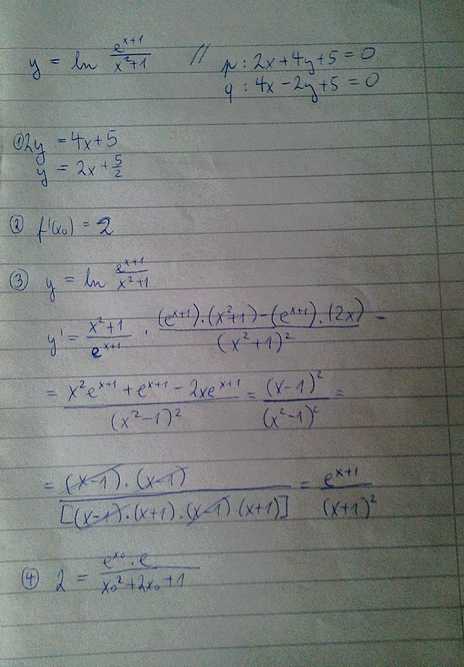 y = ln e^(x+1)/(x²+1) // p: 2x+4y+5=0
q: 4x-2y+5=0
① 2y = 4x+5
y = 2x+5/2
② f'(x₀) = 2
③ y = ln e^(x+1)/(x²+1)
y' = (x²+1)/e^(x+1) · ((e^(x+1))·(x²+1)-(e^(x+1))·(2x))/(x²+1)² =
= (x²e^(x+1)+e^(x+1)-2xe^(x+1))/(x²-1)² = (x-1)²/(x²-1)² =
= (x-1)·(x-1)/[(x-1)·(x+1)·(x-1)(x+1)] = e^(x+1)/(x+1)²
④ 2 = e^(x₀)·e/(x₀²+2x₀+1)